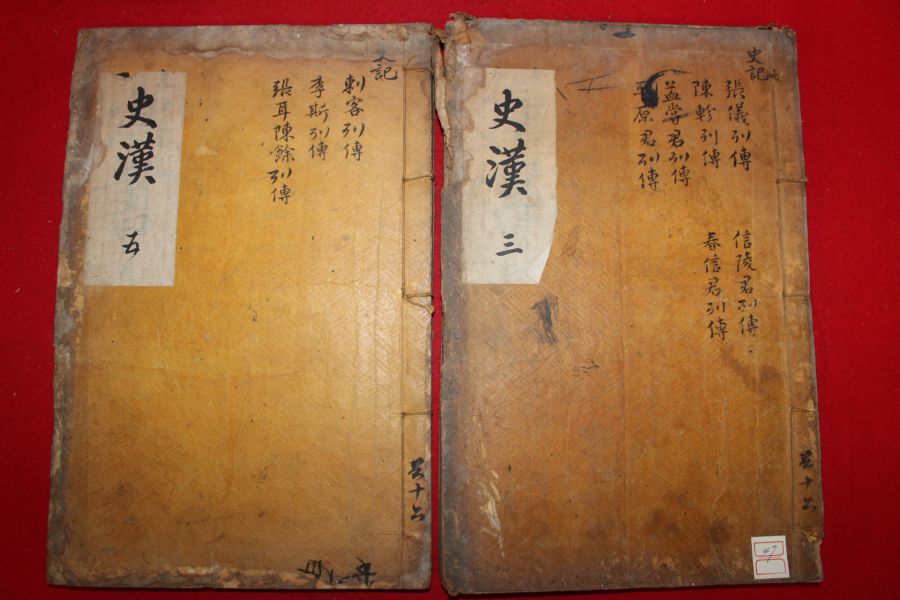 史漢
五
史記
刺客列傳
李斯列傳
張耳陳餘列傳
共十六
史漢
三
史記
張儀列傳
陳軫列傳
孟嘗君列傳
原君列傳
信陵君列傳
春信君列傳
共十六